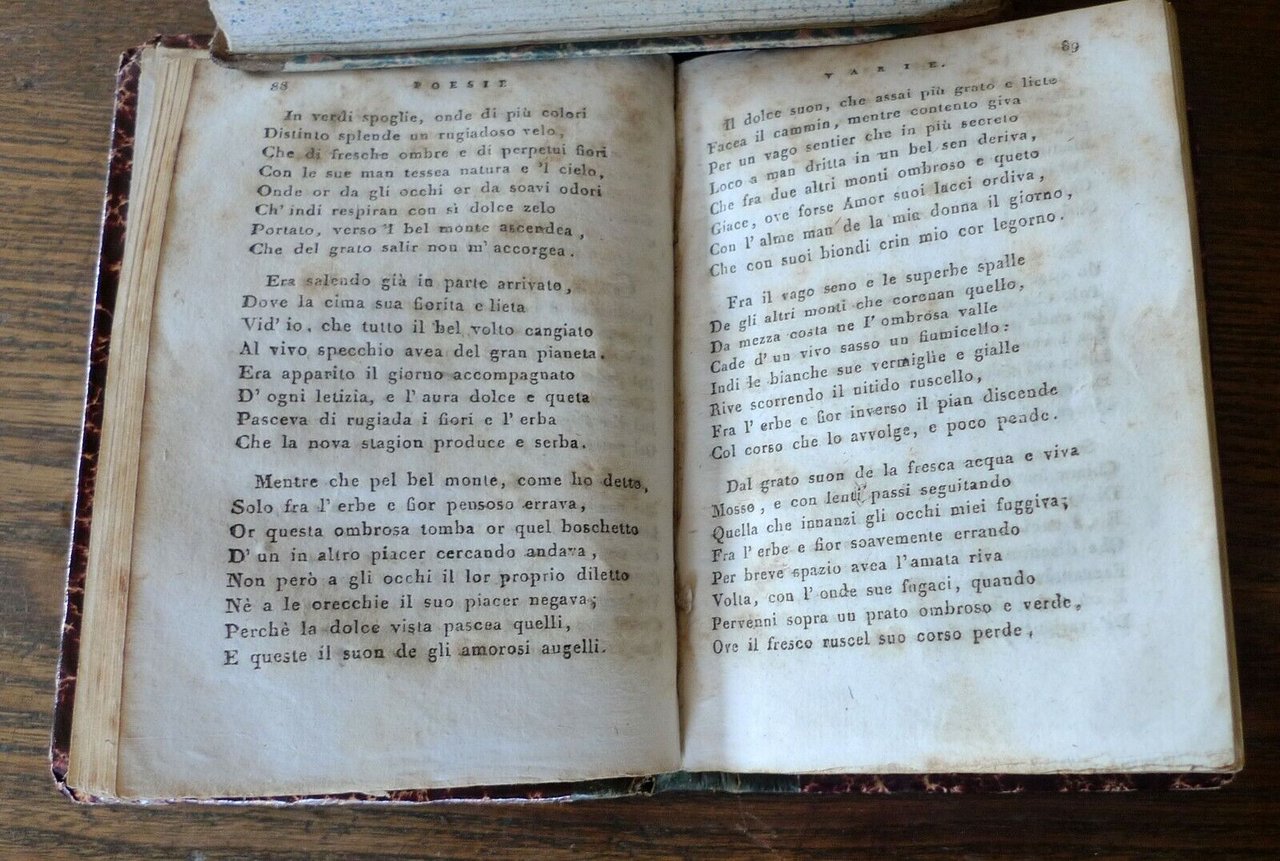 88
POESIE
In verdi spoglie, onde di più colori
Distinto splende un rugiadoso velo,
Che di fresche ombre e di perpetui fiori
Con le sue man tessea natura e 'l cielo,
Onde or da gli occhi or da soavi odori
Ch' indi respiran con sì dolce zelo
Portato, verso 'l bel monte ascendea,
Che del grato salir non m' accorgea.
Era salendo già in parte arrivato,
Dove la cima sua fiorita e lieta
Vid' io, che tutto il bel volto cangiato
Al vivo specchio avea del gran pianeta.
Era apparito il giorno accompagnato
D' ogni letizia, e l' aura dolce e queta
Pasceva di rugiada i fiori e l' erba
Che la nova stagion produce e serba.
Mentre che pel bel monte, come ho detto,
Solo fra l' erbe e fior pensoso errava,
Or questa ombrosa tomba or quel boschetto
D' un in altro piacer cercando andava,
Non però a gli occhi il lor proprio diletto
Nè a le orecchie il suo piacer negava;
Perchè la dolce vista pascea quelli,
E queste il suon de gli amorosi augelli.
VARIE.
89
Il dolce suon, che assai più grato e lieto
Facea il cammin, mentre contento giva
Per un vago sentier che in più secreto
Loco a man dritta in un bel sen deriva,
Che fra due altri monti ombroso e queto
Giace, ove forse Amor suoi lacci ordiva,
Con l' alme man de la mia donna il giorno,
Che con suoi biondi crin mio cor legorno.
Fra il vago seno e le superbe spalle
De gli altri monti che coronan quello,
Da mezza costa ne l' ombrosa valle
Cade d' un vivo sasso un fiumicello:
Indi le bianche sue vermiglie e gialle
Rive scorrendo il nitido ruscello,
Fra l' erbe e fior inverso il pian discende
Col corso che lo avvolge, e poco pende.
Dal grato suon de la fresca acqua e viva
Mosso, e con lenti passi seguitando
Quella che innanzi gli occhi miei fuggiva;
Fra l' erbe e fior soavemente errando
Per breve spazio avea l'amata riva
Volta, con l' onde sue fugaci, quando
Pervenni sopra un prato ombroso e verde,
Ove il fresco ruscel suo corso perde,